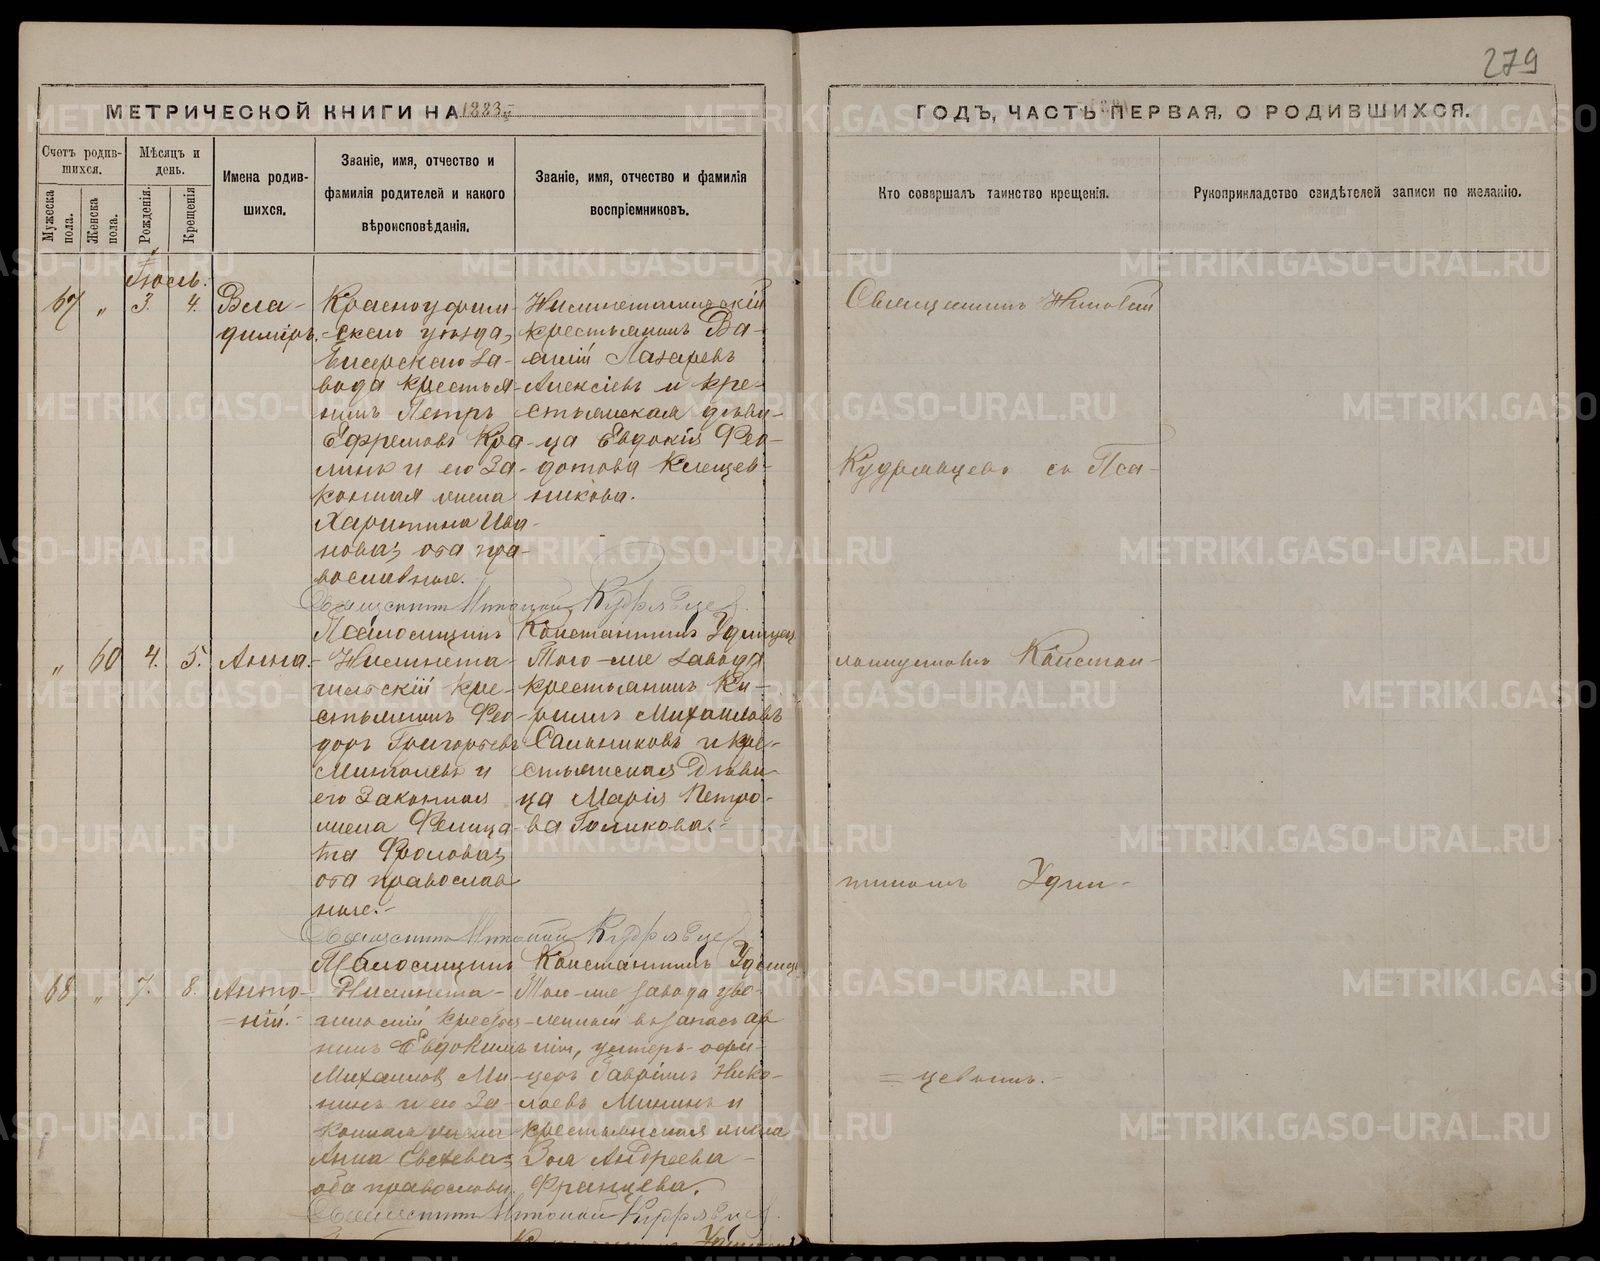 279
МЕТРИЧЕСКОЙ КНИГИ НА 1883й
ГОДЪ, ЧАСТЬ ПЕРВАЯ, О РОДИВШИХСЯ.
Счетъ родив-
шихся.
Мѣсяцъ и
день.
Мужеска
пола.
Женска
пола.
Рожденія.
Крещенія
Имена родив-
шихся.
Званіе, имя, отчество и
фамилія родителей и какого
вѣроисповѣданія.
Званіе, имя, отчество и фамилія
воспріемниковъ.
Кто совершалъ таинство крещенія.
Рукоприкладство свидѣтелей записи по желанію.
Іюль.
67 " 3. 4.
Вла-
диміръ.
Красноуфим-
скаго уѣзда,
Бисерскаго за-
вода крестья-
нинъ Петръ
Ефремовъ Кра-
и его За-
конная жена
Харитина Ива-
нова, оба пра-
вославные.
Нижнетагильскій
крестьянинъ Ва-
силій Лазаревъ
Алексѣевъ и кре-
стьянская дѣви-
ца Евдокія Фео-
дотова Клещев-
никова.
Священникъ Николай Кудрявцев
Псаломщикъ Константинъ Удинцев
" 60 4. 5.
Анна.
Нижнета-
гильскій кре-
стьянинъ Фео-
доръ Григорьевъ
и
его Законная
жена Фелица-
та Фролова,
оба православ
ные.
Того-же завода
крестьянинъ Ки-
рилъ Михайловъ
Сальниковъ и кре-
стьянская Дѣви-
ца Марія Петро-
ва Голикова.
Священникъ Николай Кудрявцев
Псаломщикъ Константинъ Удинцев
68 " 7. 8.
Анто-
ній.
Нижнета-
гильскій крестья-
нинъ Евдокимъ
Михайлов Ми-
нинъ и его За-
конная жена
Анна
оба православн.
Того-же завода уво-
ленный въ запасъ ар
міи, унтеръ-офи-
церъ Гавріилъ Нико-
лаевъ Мининъ и
крестьянская жена
Зоя Андреева
Францева.
Священникъ Николай Кудрявцев
Священникъ Николай
Кудрявцевъ съ Пса-
ломщикомъ Констан-
тиномъ Удин-
цевымъ.
METRIKI.GASO-URAL.RU